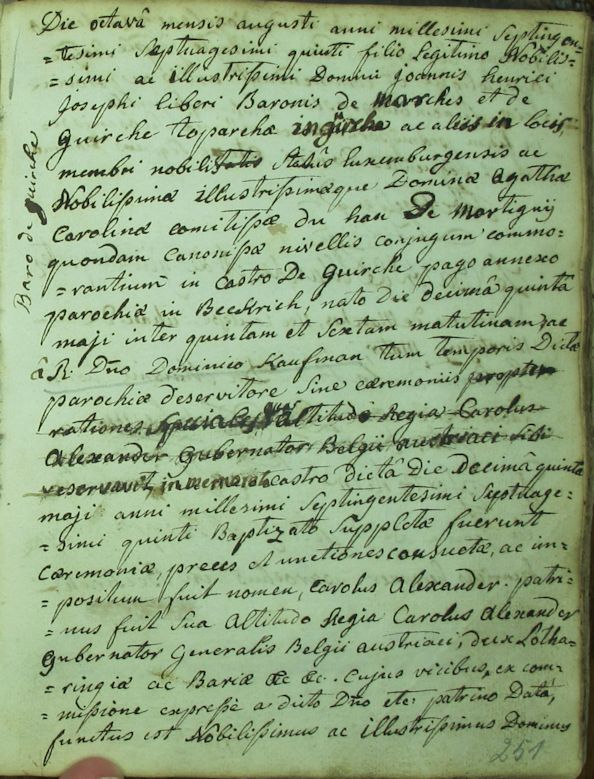 Die octavâ mensis augusti anni millesimi Septingen-
=tesimi Septuagesimi quinti filio Legitimo Nobilis=
=simi ac illustrissimi Domini Joannis henrici
Josephi liberi Baronis de Marches et de
Guirche toparchæ in güirche ac aliis in locis,
membri nobilitatis Statûs luxemburgensis ac
Nobilissimæ illustrissimæque Dominæ Agathæ
Carolinæ comitissæ du han De Martignij
quondam Canonissæ nivellis conjugum commo=
=rantium in castro De Guirche pago annexo
parochiæ in Beckrich, nato die decimâ quintâ
maji inter quintam et Sextam matutinam, ac
â R: Dño Dominico Kaufman tum temporis Dictæ
parochiæ deservitore Sine cæremoniis propter
rationes speciales altitudo Regia Carolus
Alexander Gubernator Belgii austriaci sibi
reservavit, in castro dictâ Die Decimâ quintâ
maji anni millesimi Septingentesimi Septuage=
=simi quinti Baptizato Suppletæ fuerunt
Cæremoniæ, preces et unctiones consuetæ, ac im=
=positum fuit nomen, Carolus Alexander. patri=
=nus fuit Sua Altitudo Regia Carolus Alexander
Gubernator Generalis Belgii austriaci, dux Lotha=
=ringiæ ac Bariæ &c &c. Cujus vicibus, ex com=
=missione expressè a dicto Dño etc: patrino Datâ,
functus est Nobilissimus ac illustrissimus Dominus
251
Baro de Guirche